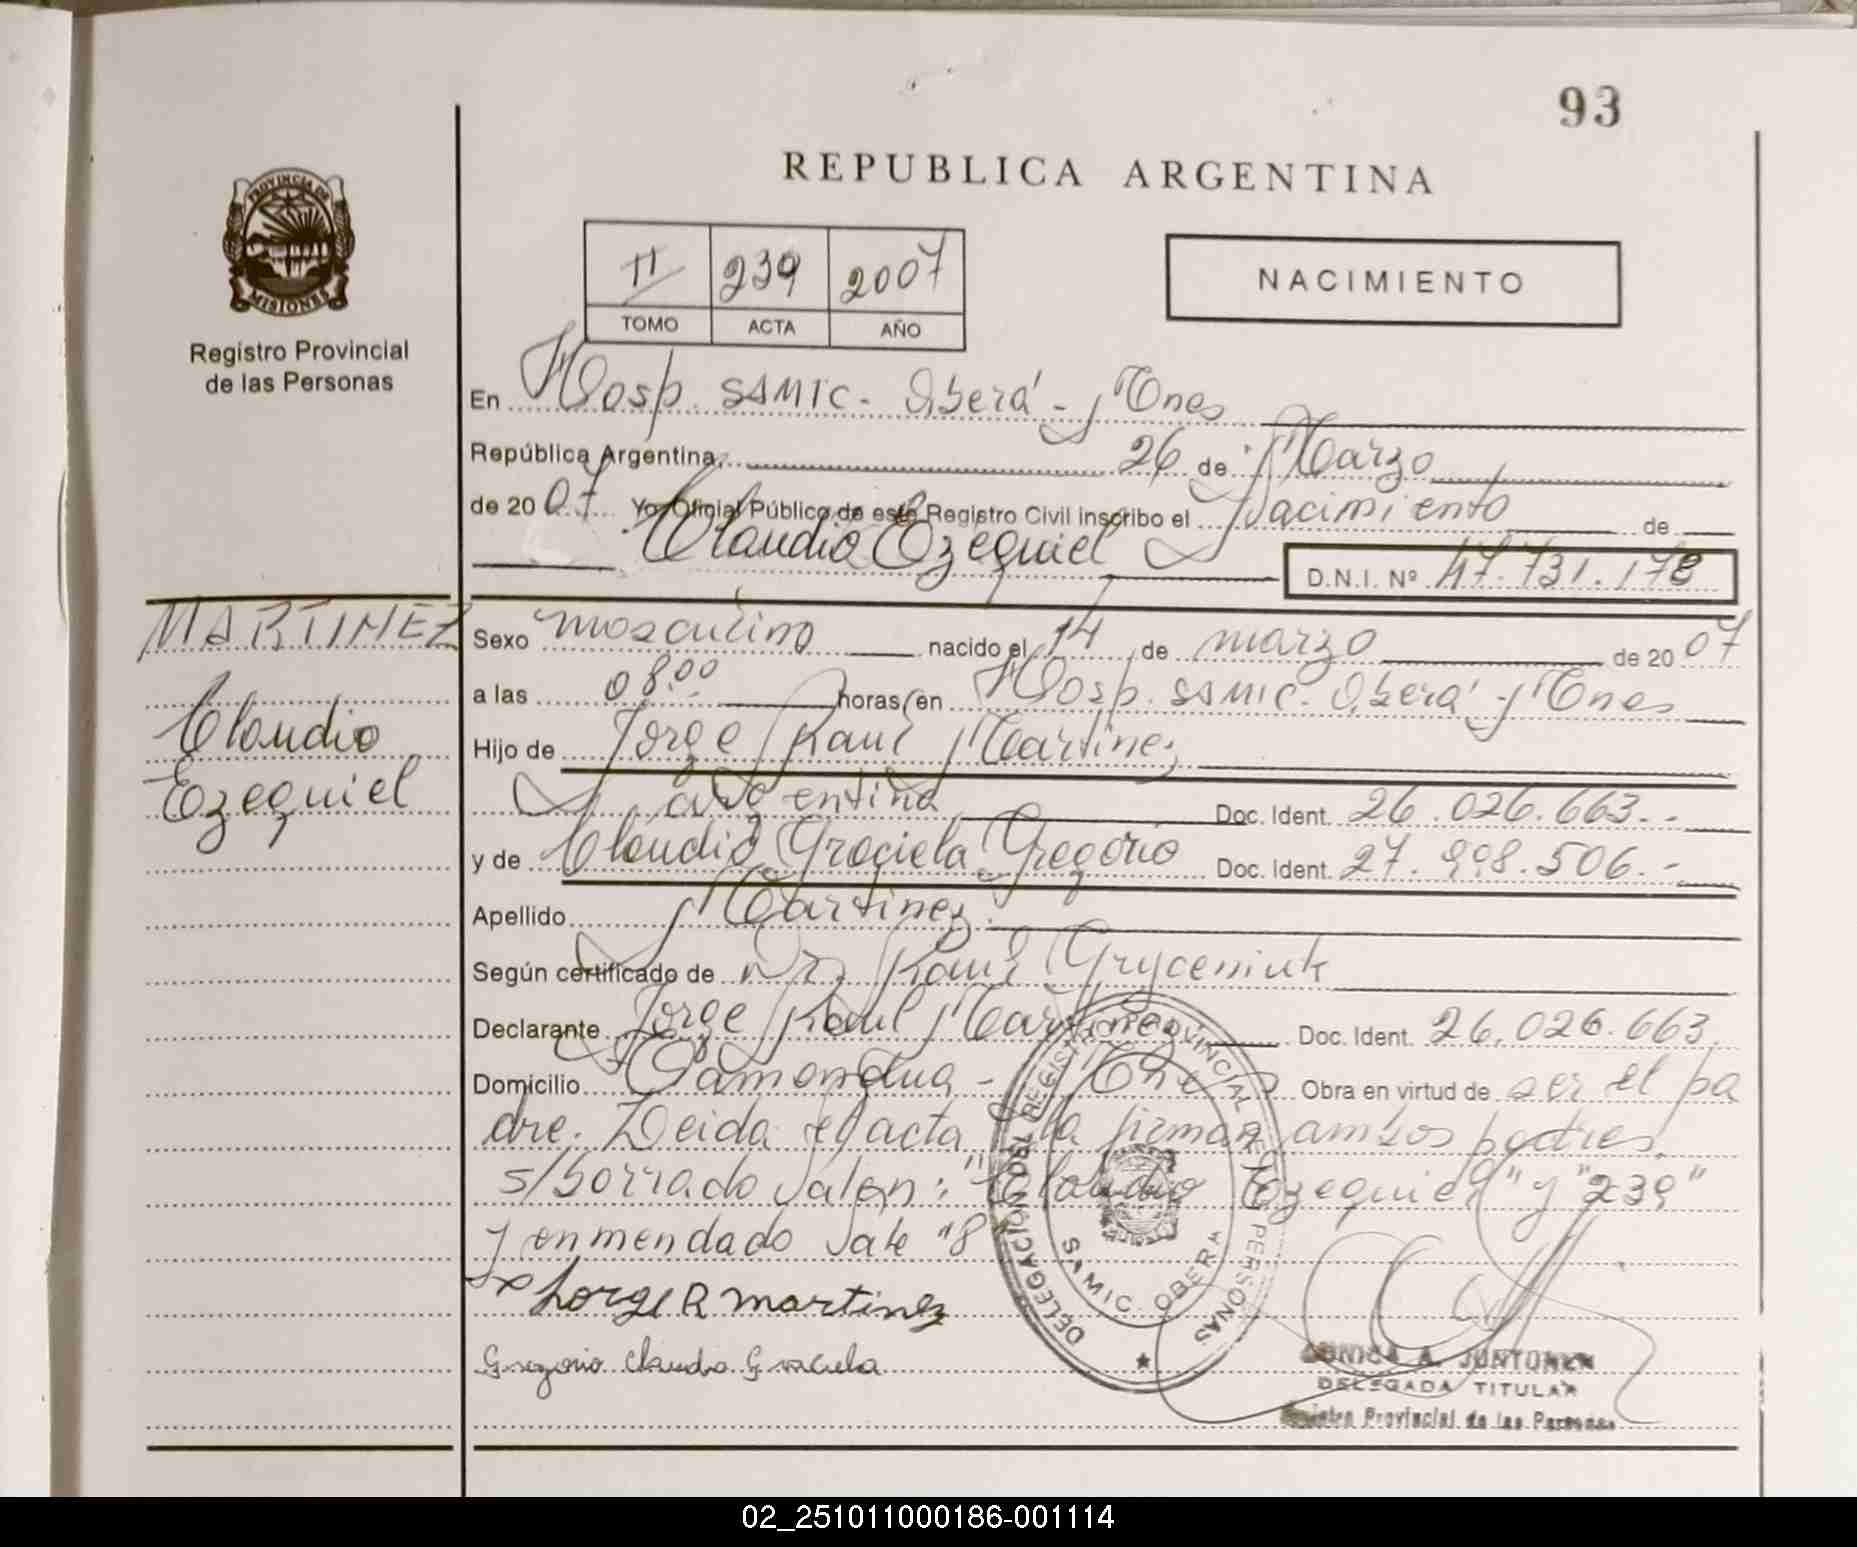 93
REPUBLICA ARGENTINA
PROVINCIA DE
MISIONES
Registro Provincial
de las Personas
II 239 2007
TOMO ACTA AÑO
NACIMIENTO
En Hosp. SAMIC - Oberá - Mnes
República Argentina, 26 de Marzo
de 2007 Yo Oficial Público de este Registro Civil inscribo el Nacimiento de
Claudio Ezequiel D.N.I. Nº 47.731.178
MARTINEZ
Claudio
Ezequiel
Sexo masculino nacido el 14 de marzo de 2007
a las 08:00 horas en Hosp. SAMIC - Oberá - Mnes
Hijo de Jorge Raul Martinez
argentina Doc. Ident. 26.026.663.-
y de Claudia Graciela Gregorio Doc. Ident. 27.998.506.-
Apellido Martinez
Según certificado de Dr. Raul Gryceniuk
Declarante Jorge Raul Martinez Doc. Ident. 26.026.663.
Domicilio Mnes Obra en virtud de ser el pa
dre. Leida el acta la firman ambos padres.
s/borrado valen: "Claudio Ezequiel" y "239"
y enmendado vale "8"
Jorge R martinez
Gregorio Claudia Graciela
DELEGACION DEL REGISTRO PROVINCIAL DE LAS PERSONAS
SAMIC OBERA
A. JUNTUNEN
DELEGADA TITULAR
Registro Provincial de las Personas
02_251011000186-001114